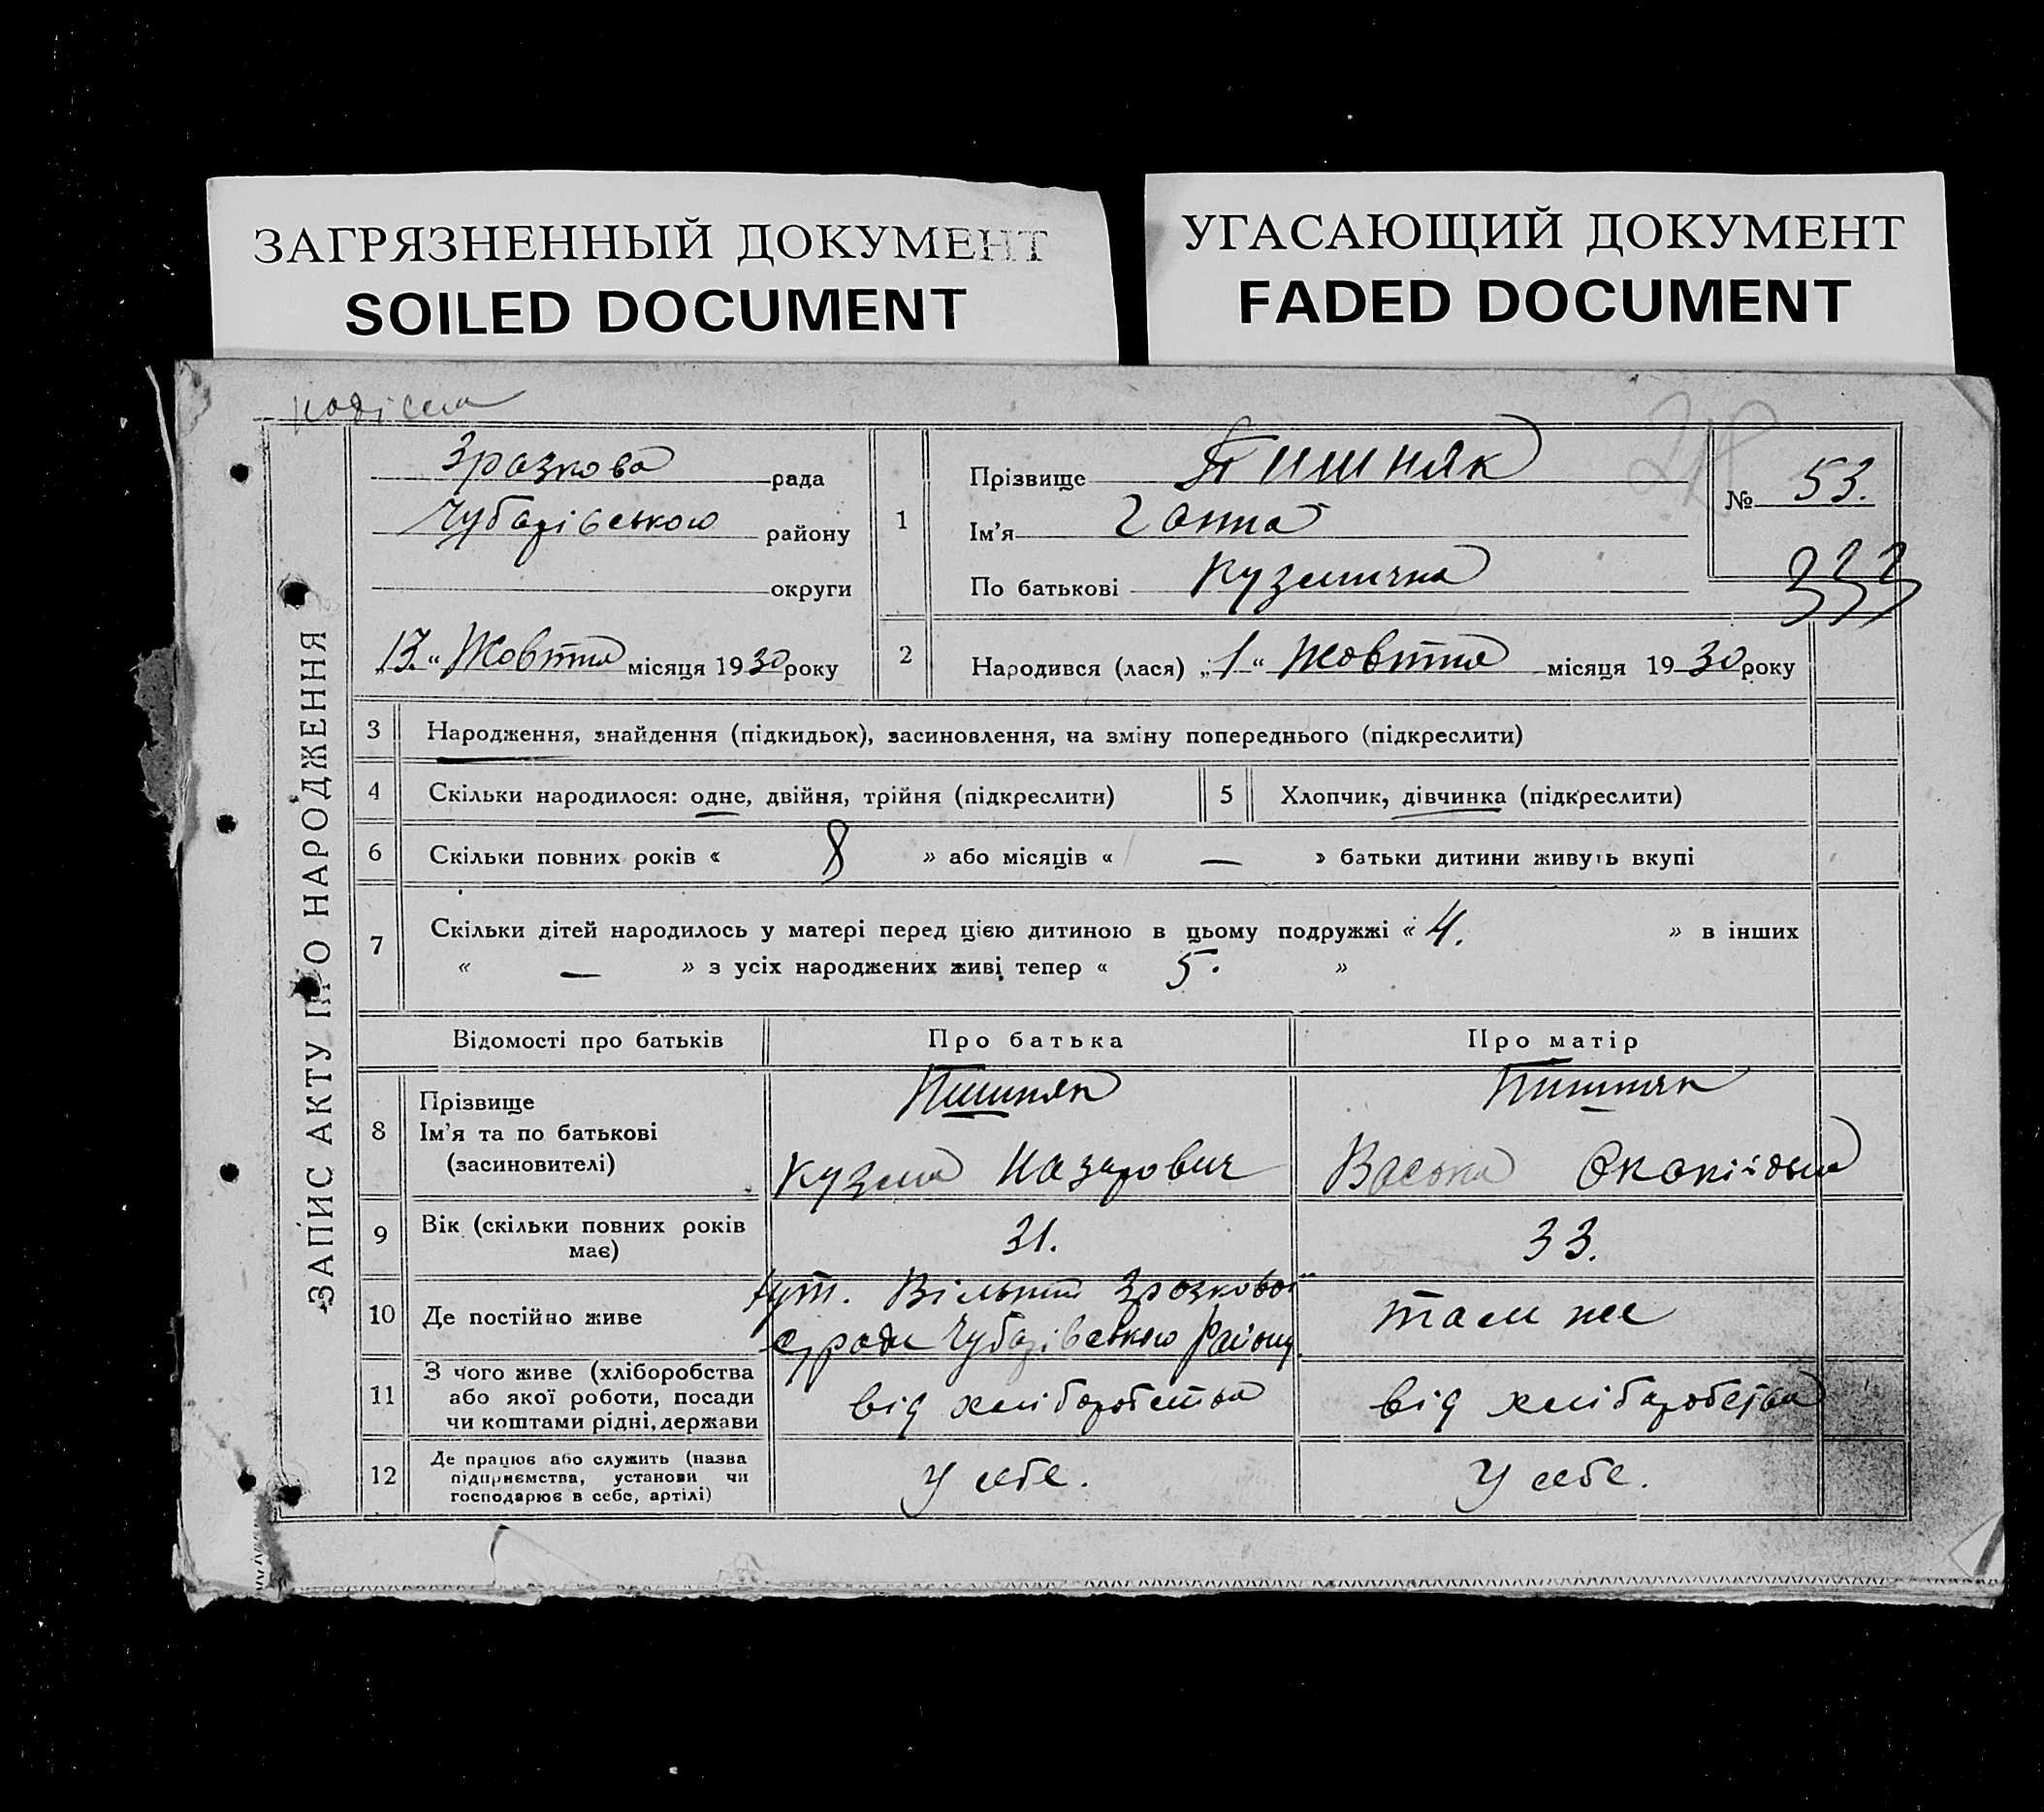 ЗАГРЯЗНЕННЫЙ ДОКУМЕНТ
SOILED DOCUMENT
УГАСАЮЩИЙ ДОКУМЕНТ
FADED DOCUMENT
ЗАПИС АКТУ ПРО НАРОДЖЕННЯ
Зразкова рада
Чубарівського району
округи
„13“ Жовтня місяця 1930 року
1
Прізвище Пишняк
Ім'я Ганна
По батькові Кузмична
№ 53.
333
2
Народився (лася) „1“ Жовтня місяця 1930 року
3 Народження, знайдення (підкидьок), засиновлення, на зміну попереднього (підкреслити)
4 Скільки народилося: одне, двійня, трійня (підкреслити)
5 Хлопчик, дівчинка (підкреслити)
6 Скільки повних років « 8 » або місяців « — » батьки дитини живуть вкупі
7 Скільки дітей народилось у матері перед цією дитиною в цьому подружжі « 4. » в інших
« — » з усіх народжених живі тепер « 5. »
Відомості про батьків Про батька Про матір
8 Прізвище Пишняк Пишняк
Ім'я та по батькові
(засиновителі) Кузма Назарович Васька
9 Вік (скільки повних років
має) 31. 33.
10 Де постійно живе хут. Вільний Зразковой
с/ради Чубарівського району. там же
11 З чого живе (хліборобства
або якої роботи, посади
чи коштами рідні, держави
від хліборобства від хліборобства
12 Де працює або служить (назва
підприємства, установи чи
господарює в себе, артілі)
У себе. У себе.